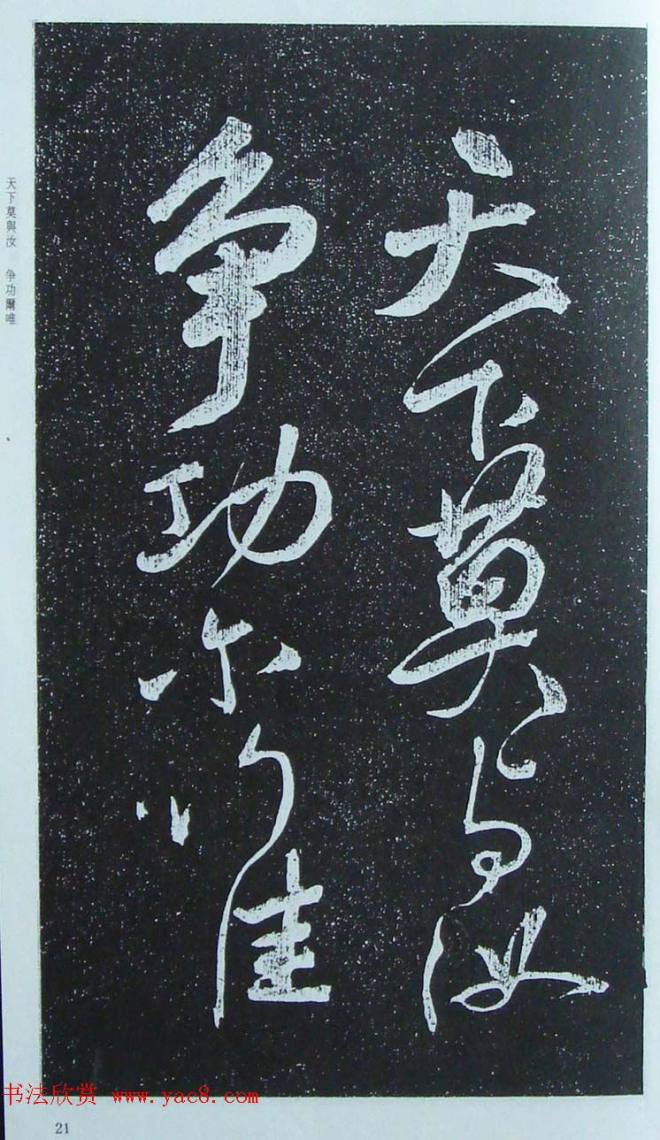 天下莫与汝
争功尔唯
天下莫與汝 争功爾唯
书法欣赏 www.yac8.com
21